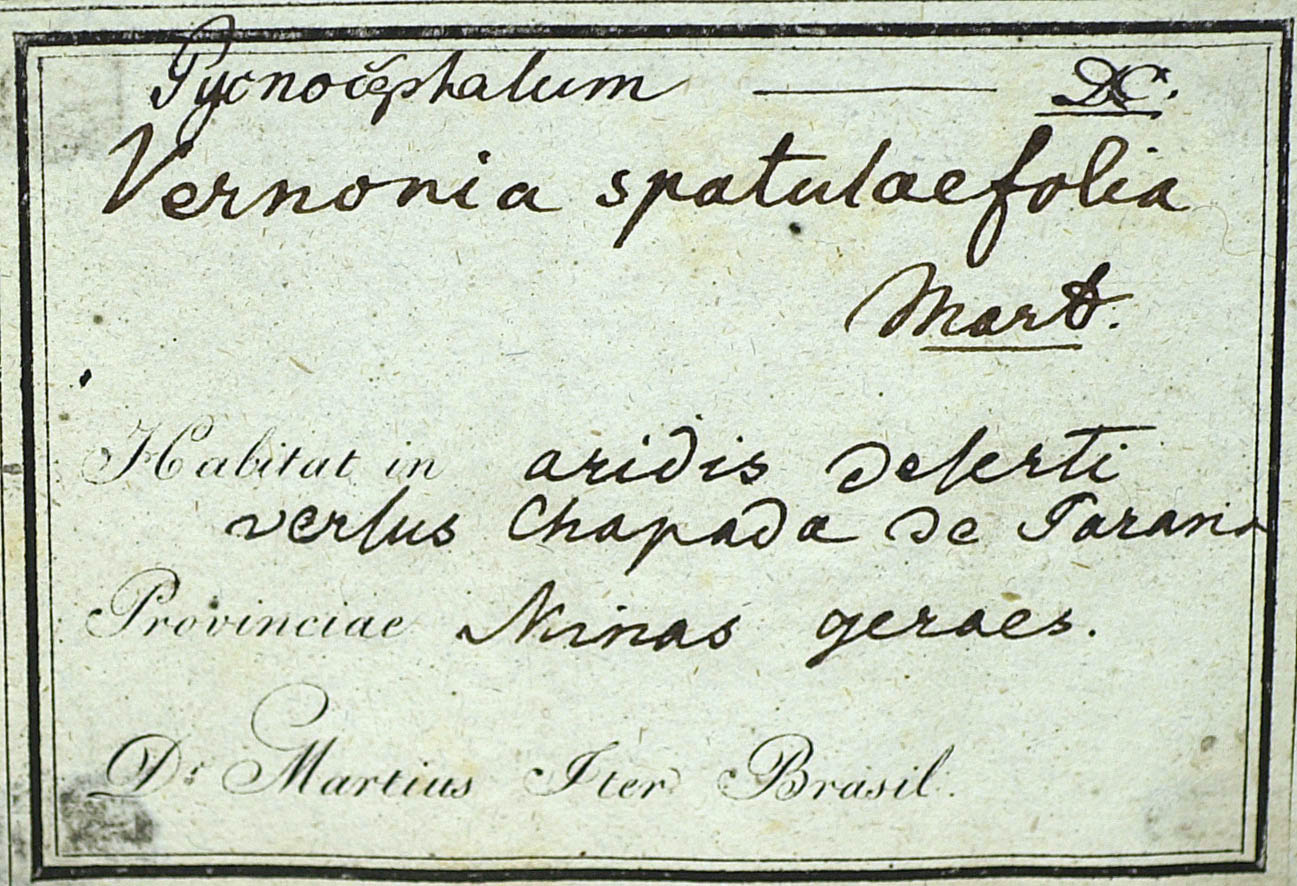 Pycnocephalum — DC.
Vernonia spatulaefolia
Mart.
Habitat in aridis deſerti
verſus Chapada de Parana
Provinciae Minas geraes.
Dr Martius Iter Brasil.